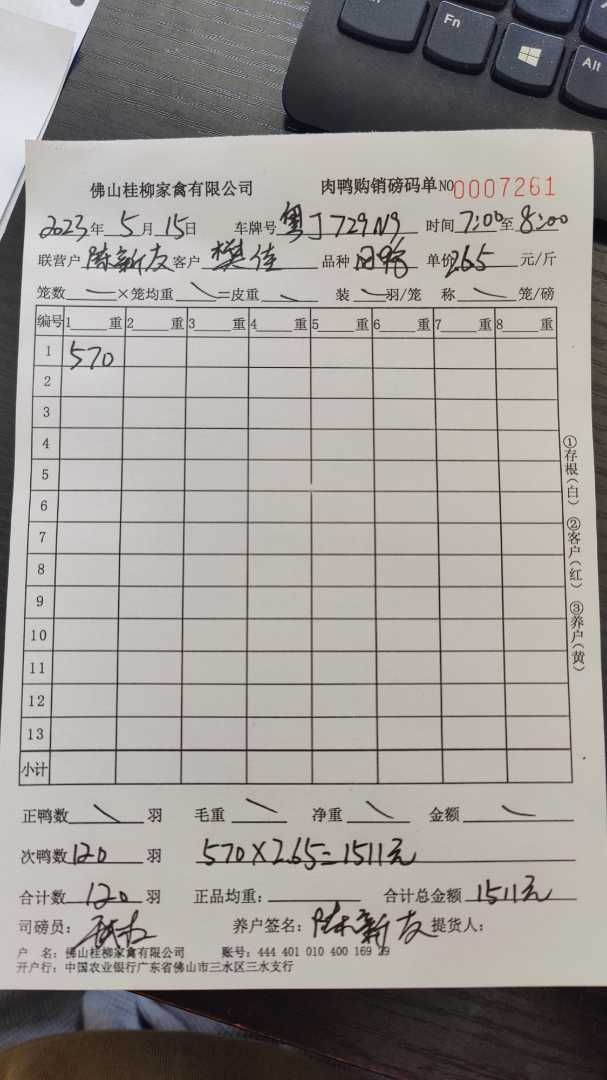 Fn
Alt
佛山桂柳家禽有限公司 肉鸭购销磅码单 NO 0007261
2023年 5月 15日 车牌号 粤J729N9 时间 7:00至 8:00
联营户 陈新友 客户 樊佳 品种 单价 2.65 元/斤
笼数 一 ×笼均重 \ =皮重 \ 装 \ 羽/笼 称 \ 笼/磅
编号 1 重 2 重 3 重 4 重 5 重 6 重 7 重 8 重
1 570
2
3
4
5
6
7
8
9
10
11
12
13
小计
①存根(白) ②客户(红) ③养户(黄)
正鸭数 \ 羽 毛重 \ 净重 \ 金额 \
次鸭数 120 羽 570×2.65=1511元
合计数 120 羽 正品均重: 合计总金额 1511元
司磅员: 养户签名: 陈新友 提货人:
户 名: 佛山桂柳家禽有限公司 账号: 444 401 010 400 169 29
开户行: 中国农业银行广东省佛山市三水区三水支行